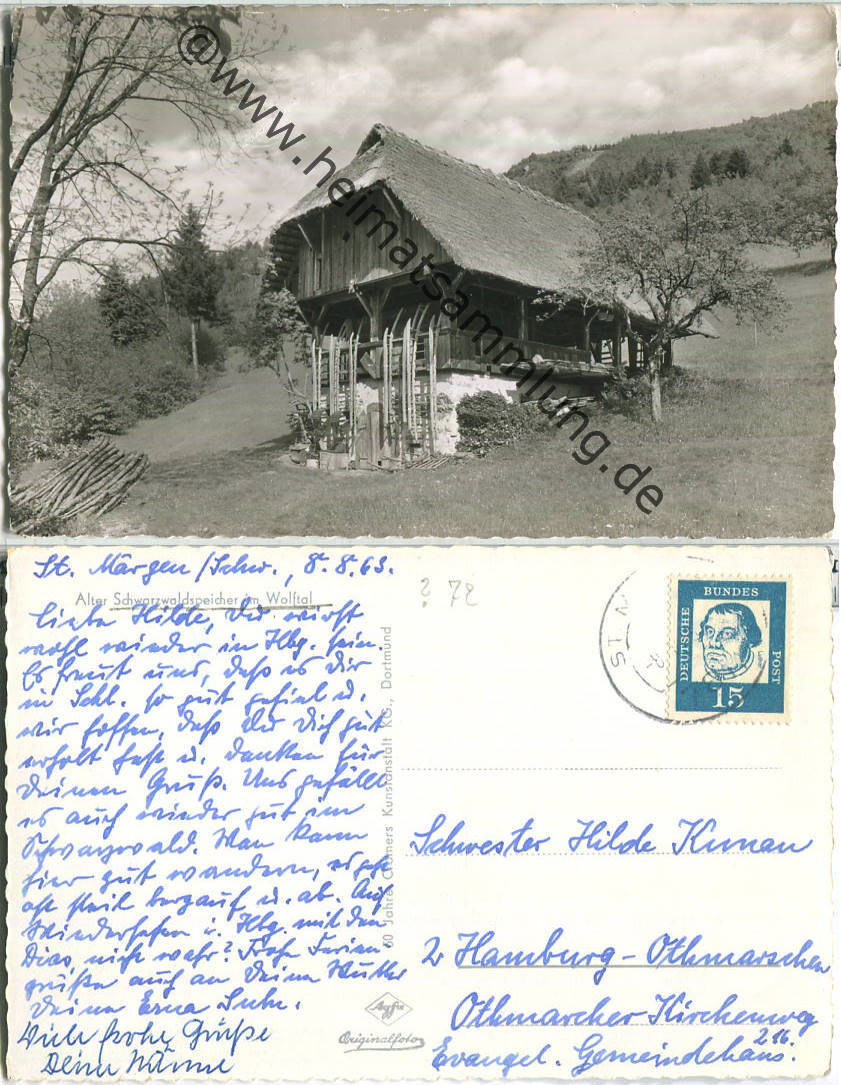 @www.heimatsammlung.de
St. Märgen/Schw., 8.8.63.
Alter Schwarzwaldspeicher im Wolftal
Liebe Hilde, Du wirst
wohl wieder in Hbg. sein.
Es freut uns, daß es Dir
in Schl. so gut gefiel u.
wir hoffen, daß Du Dich gut
erholt hast u. danken für
Deinen Gruß. Uns gefällt
es auch wieder gut im
Schwarzwald. Man kann
hier gut wandern, es geht
oft steil bergauf u. ab. Auf
Wiedersehen i. Hbg. mit den
Dias, nicht wahr? Frohe Ferien
grüße auch an Deine Mutter
Deine Erna
Viele frohe Grüße
Deine
60 Jahre Cramers Kunstanstalt KG., Dortmund
Agfa
Originalfoto
? 72
ST.
DEUTSCHE
BUNDES
POST
15
Schwester Hilde Kunau
2 Hamburg - Othmarschen
Othmarscher Kirchenweg
216.
Evangel. Gemeindehaus.